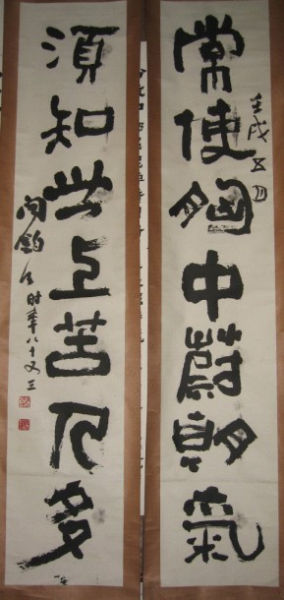 常使胸中蔚朝氣
壬戌五月
須知世上苦人多
时年八十又三